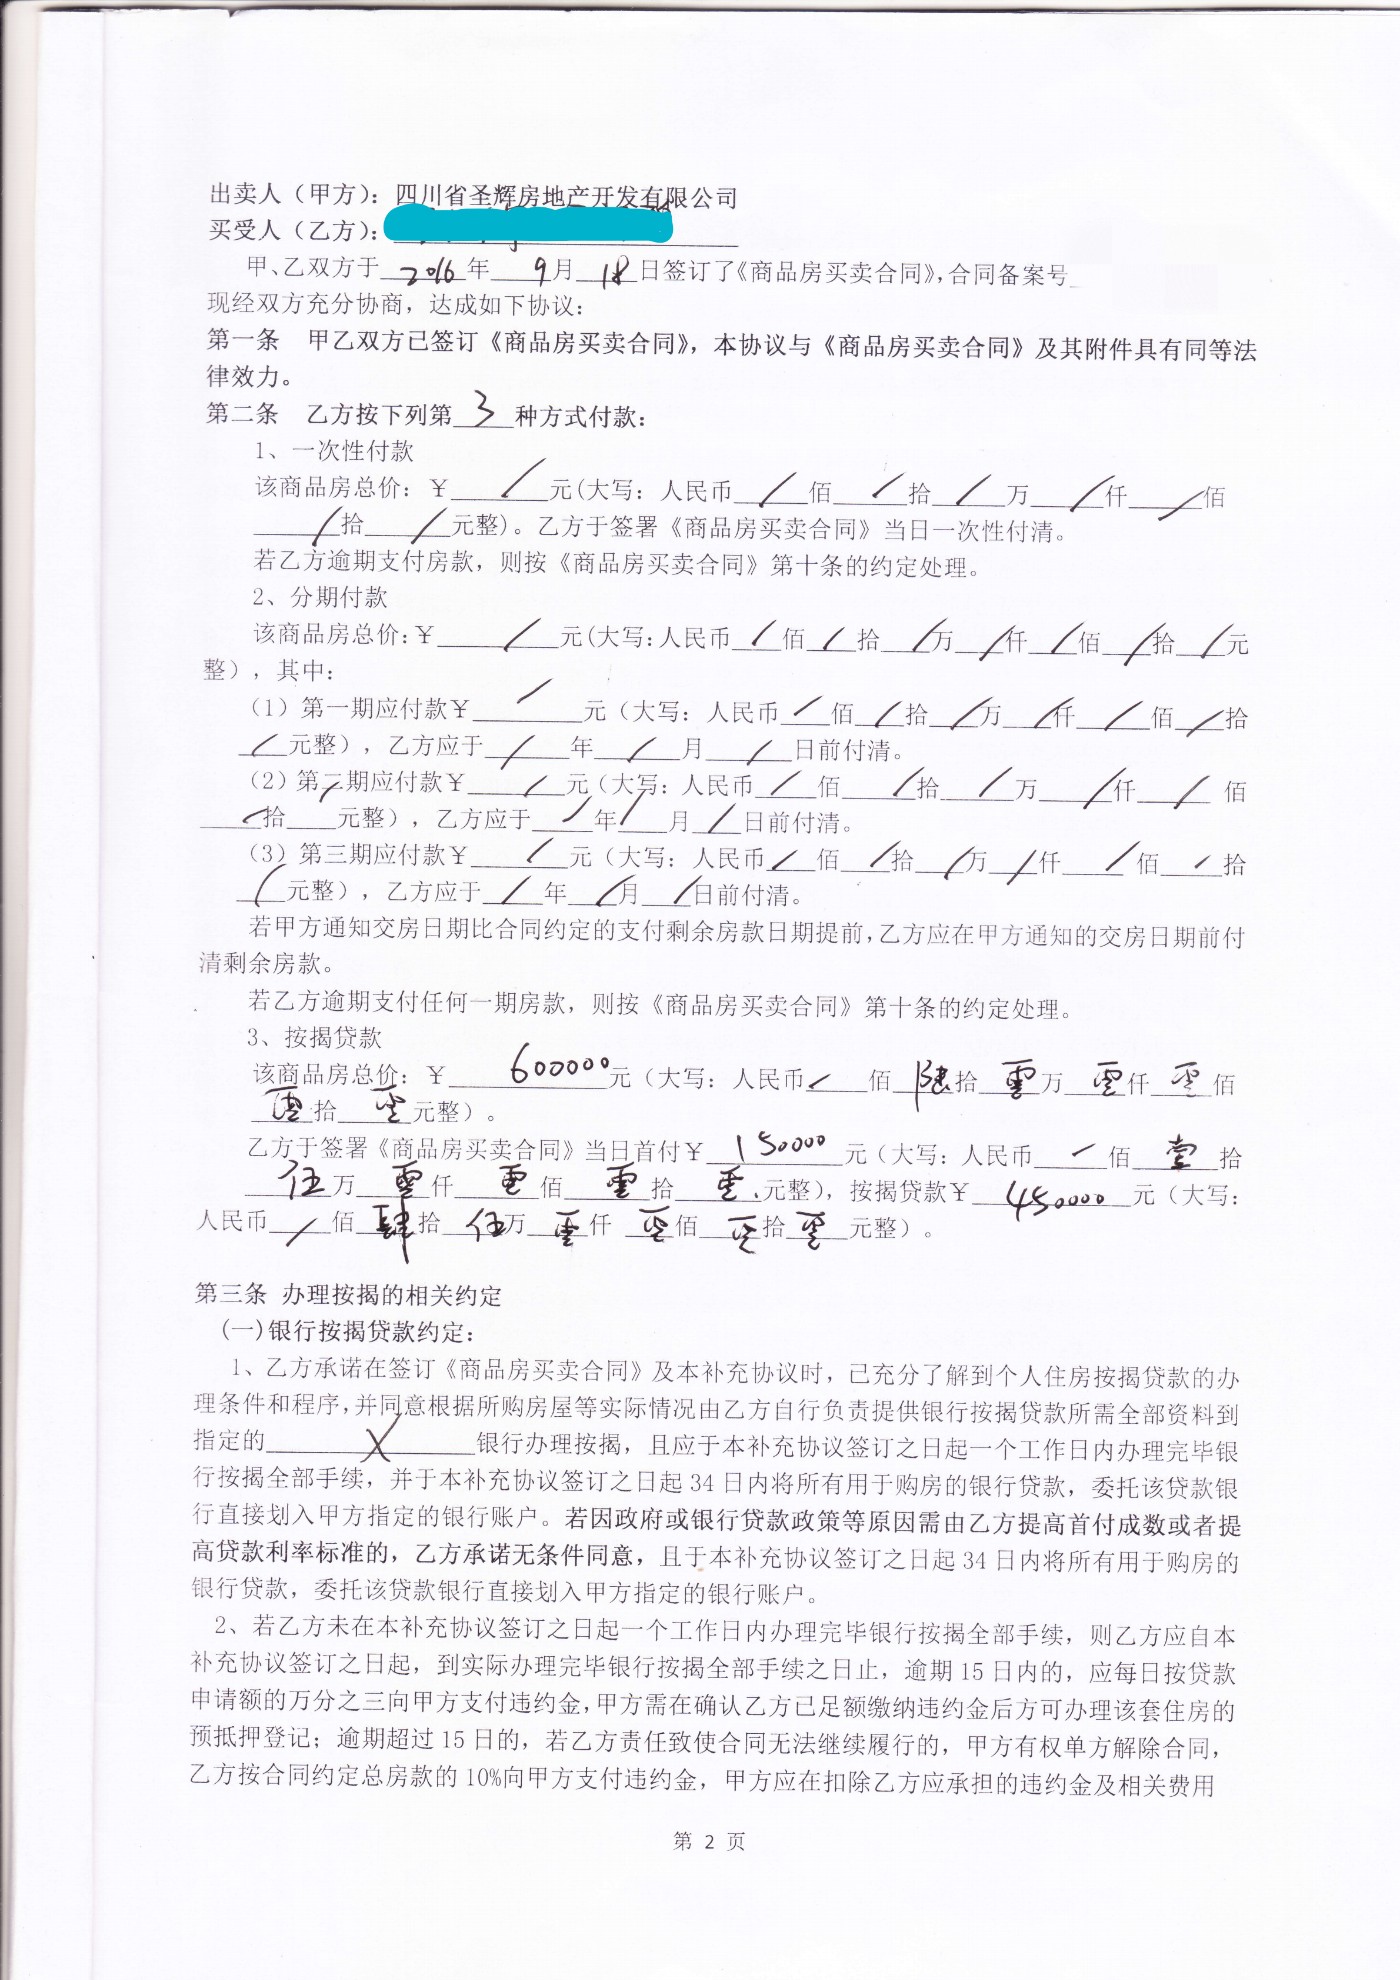 出卖人（甲方）：四川省圣辉房地产开发有限公司
买受人（乙方）：
甲、乙双方于2016年9月18日签订了《商品房买卖合同》，合同备案号
现经双方充分协商，达成如下协议：
第一条 甲乙双方已签订《商品房买卖合同》，本协议与《商品房买卖合同》及其附件具有同等法
律效力。
第二条 乙方按下列第3种方式付款：
1、一次性付款
该商品房总价：￥/元(大写：人民币/佰/拾/万/仟/佰
/拾/元整)。乙方于签署《商品房买卖合同》当日一次性付清。
若乙方逾期支付房款，则按《商品房买卖合同》第十条的约定处理。
2、分期付款
该商品房总价：￥/元(大写：人民币/佰/拾/万/仟/佰/拾/元
整），其中：
（1）第一期应付款￥/元（大写：人民币/佰/拾/万/仟/佰/拾
/元整），乙方应于/年/月/日前付清。
（2）第二期应付款￥/元（大写：人民币/佰/拾/万/仟/佰
/拾元整），乙方应于/年/月/日前付清。
（3）第三期应付款￥/元（大写：人民币/佰/拾/万/仟/佰/拾
/元整），乙方应于/年/月/日前付清。
若甲方通知交房日期比合同约定的支付剩余房款日期提前，乙方应在甲方通知的交房日期前付
清剩余房款。
若乙方逾期支付任何一期房款，则按《商品房买卖合同》第十条的约定处理。
3、按揭贷款
该商品房总价：￥600000元（大写：人民币/佰陆拾零万零仟零佰
零拾零元整）。
乙方于签署《商品房买卖合同》当日首付￥150000元（大写：人民币/佰壹拾
伍万零仟零佰零拾零元整），按揭贷款￥450000元（大写：
人民币/佰肆拾伍万零仟零佰零拾零元整）。
第三条 办理按揭的相关约定
(一)银行按揭贷款约定：
1、乙方承诺在签订《商品房买卖合同》及本补充协议时，已充分了解到个人住房按揭贷款的办
理条件和程序，并同意根据所购房屋等实际情况由乙方自行负责提供银行按揭贷款所需全部资料到
指定的X银行办理按揭，且应于本补充协议签订之日起一个工作日内办理完毕银
行按揭全部手续，并于本补充协议签订之日起34日内将所有用于购房的银行贷款，委托该贷款银
行直接划入甲方指定的银行账户。若因政府或银行贷款政策等原因需由乙方提高首付成数或者提
高贷款利率标准的，乙方承诺无条件同意，且于本补充协议签订之日起34日内将所有用于购房的
银行贷款，委托该贷款银行直接划入甲方指定的银行账户。
2、若乙方未在本补充协议签订之日起一个工作日内办理完毕银行按揭全部手续，则乙方应自本
补充协议签订之日起，到实际办理完毕银行按揭全部手续之日止，逾期15日内的，应每日按贷款
申请额的万分之三向甲方支付违约金，甲方需在确认乙方已足额缴纳违约金后方可办理该套住房的
预抵押登记；逾期超过15日的，若乙方责任致使合同无法继续履行的，甲方有权单方解除合同，
乙方按合同约定总房款的10%向甲方支付违约金，甲方应在扣除乙方应承担的违约金及相关费用
第 2 页